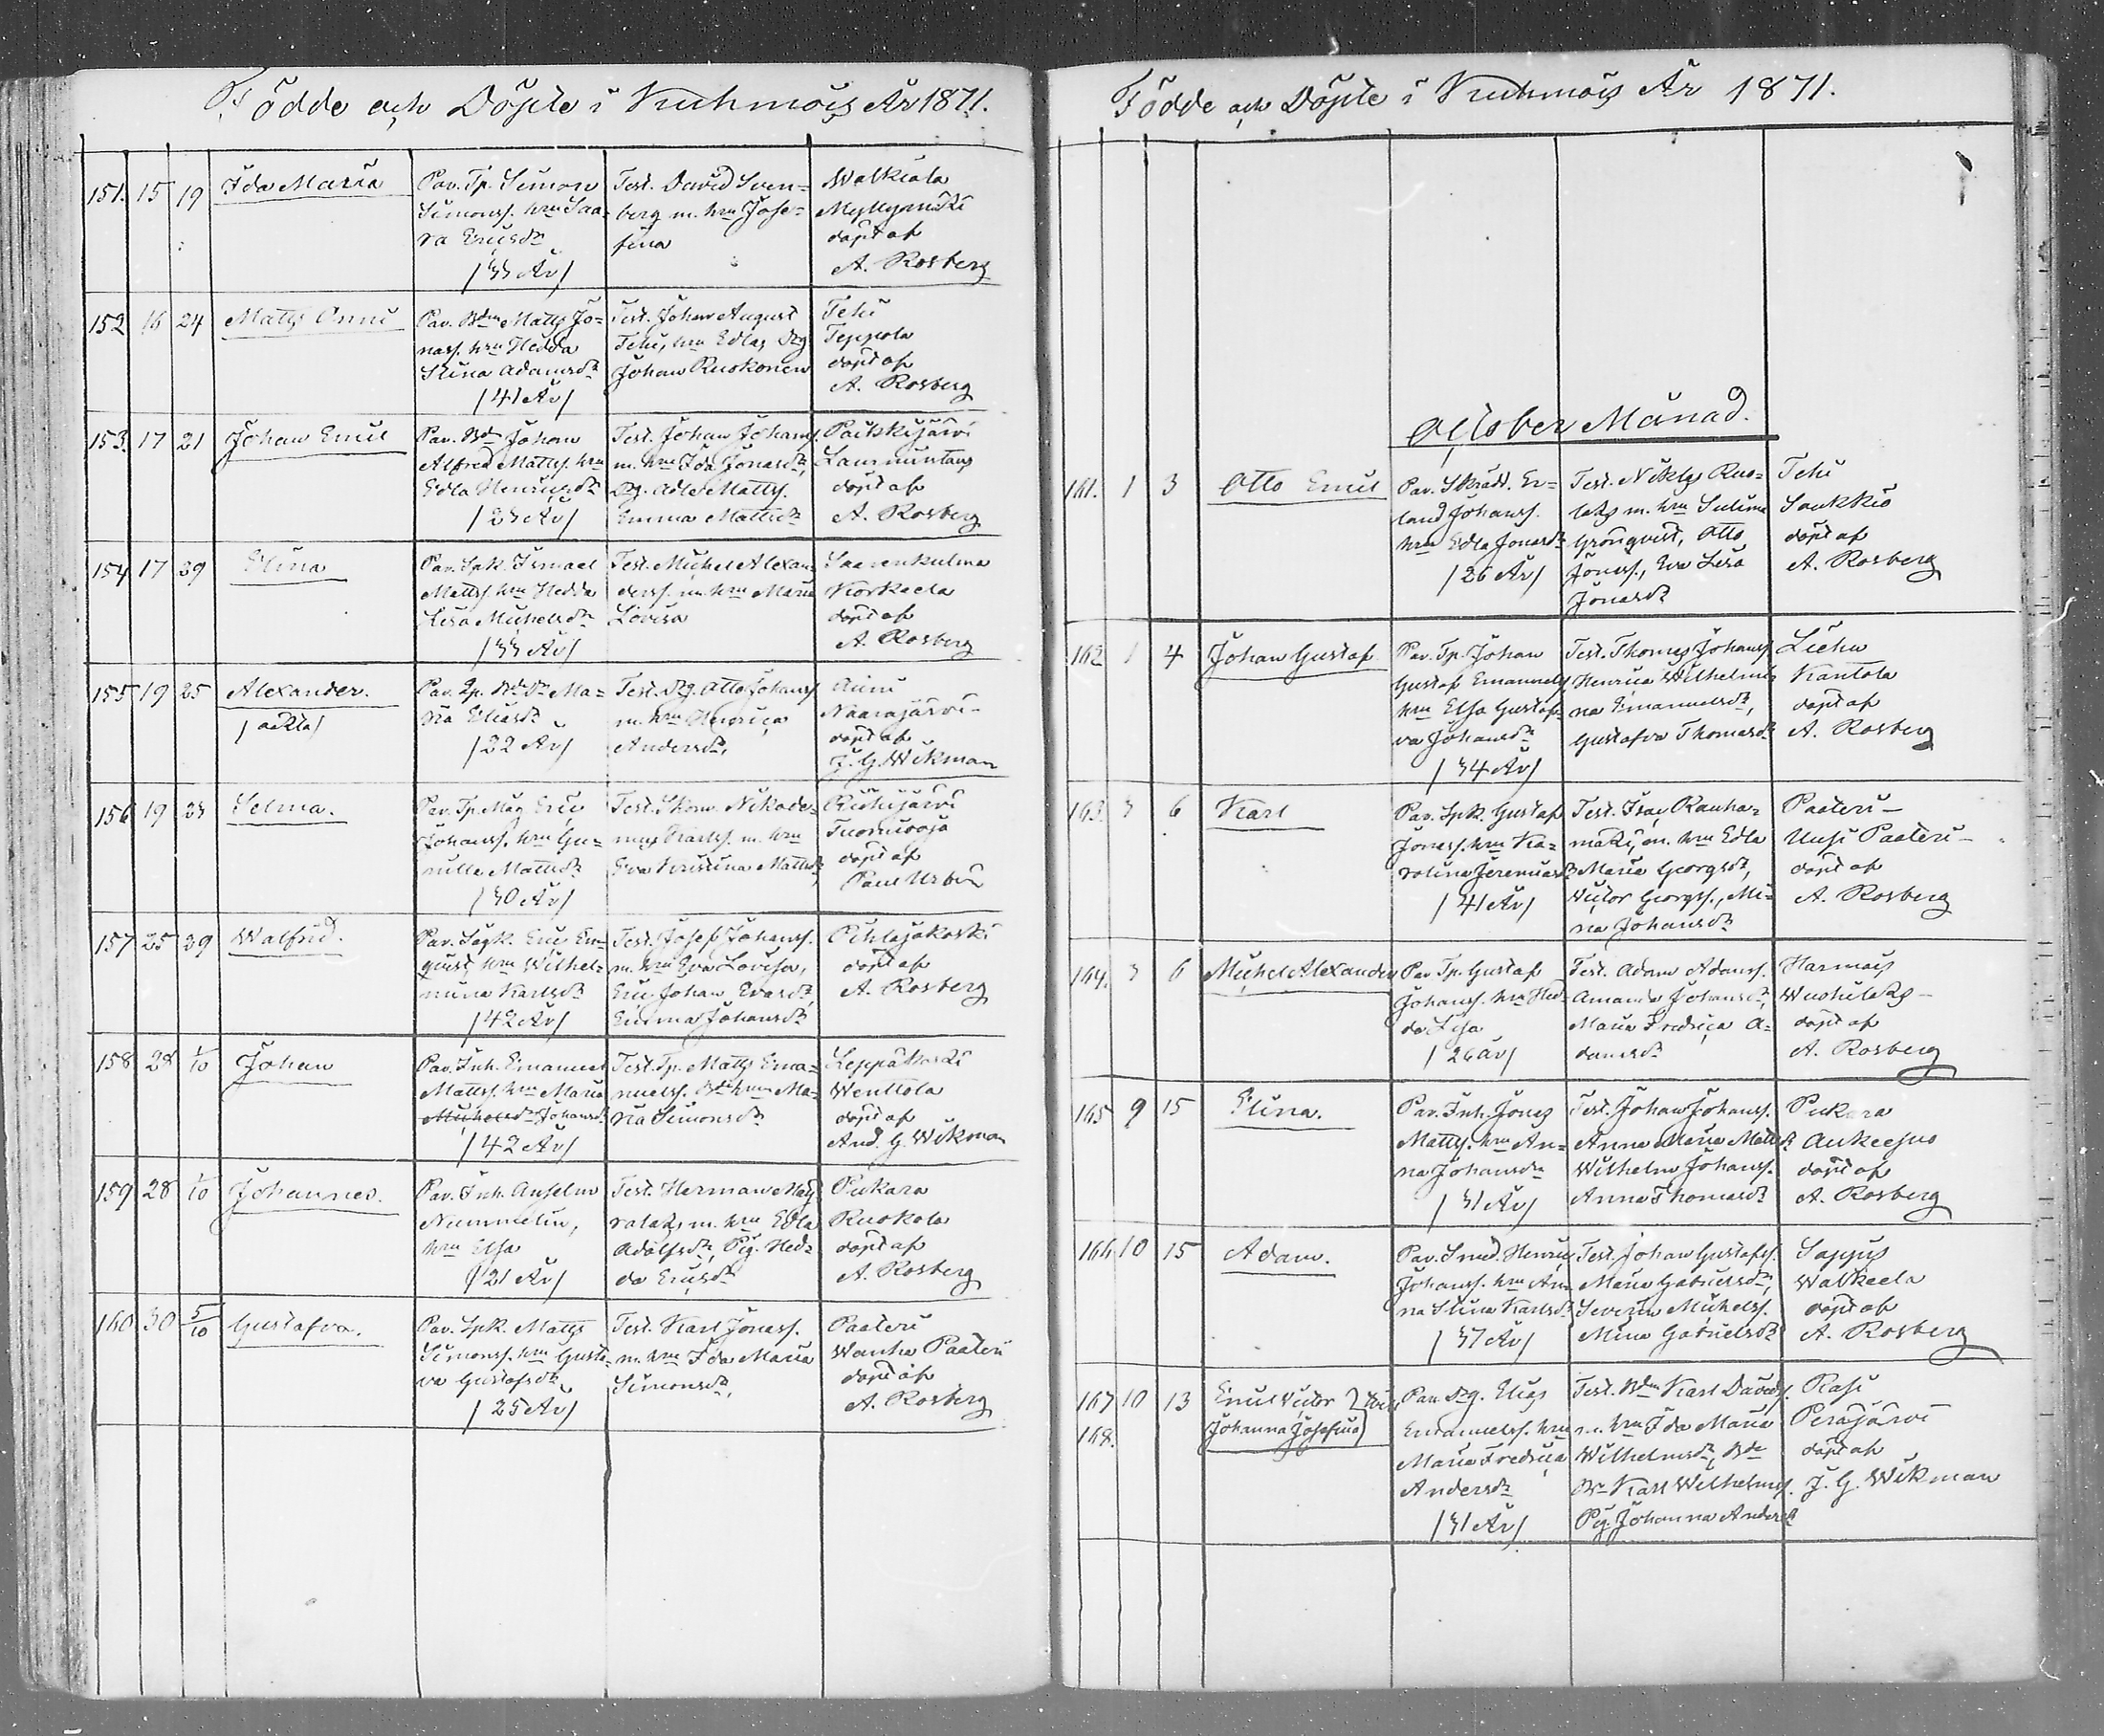 Födde och Döpte i Kuhmois År 1871.
151. 15 19 Ida Maria
Par. Tp. Simon
Simonss. hru Saa-
ra Ericsdr
/33 År/
Test. David Sven-
berg m. hru Jose-
fina
Walkiala
Myllymäki
döpt af
A. Rosberg
152 16 24 Matts Onni
Par. Bdn Matts Jo-
nass. hru Hedda
Stina Adamsdr
/41 År/
Test. Johan August
Tehi, hru Edla, Dg
Johan Ruokonen
Tehi
Teppola
döpt af
A. Rosberg
153. 17 21 Johan Emil
Par. Bd Johan
Alfred Mattss. hru
Edla Henricsdr
/23 År/
Test. Johan Johanss.
m. hru Ida Jonasdr,
Dg. Adle Mattss.
Emma Mattsdr
Patiskijärvi
döpt af
A. Rosberg
154 17 29 Elina
Par. Spk. Ismael
Mattss. hru Hedda
Lisa Michelsdr
/33 År/
Test. Michel Alexan-
derss. m. hru Maria
Lovisa
Saarenkulma
Korkeela
döpt af
A. Rosberg
155 19 25 Alexander.
/ äkta /
Ma-
ria Eliasdr
/22 År/
Test. Dg. Otto Johanss
m. hru Henrica
Andersdr,
Auni
Naarajärvi
döpt af
J. G. Wikman
156 19 23 Selma.
Par. Tp. Mag Eric
Johanss. hru Gu-
nilla Mattsdr
/30 År/
Test. Skom. Nikode-
mus Karlss. m. hru
Eva Kristina Mattsdr,
Riihijärvi
Tuomioja
döpt af
Paul Urbin
157 25 29 Walfrid.
Par. Sågk. Eric En-
quist, hru Wilhel-
mina Karlsdr
/42 År/
Test. Josef Johanss.
m. hru Eva Lovisa,
Eric Johan Evasdr,
Emma Johansdr
Pihlajakoski
döpt af
A. Rosberg
158 28 1/10 Johan
Par. Inh. Emanuel
Mattss. hru Maria
Michelsdr Johansdr
/42 År/
Test. Tp. Matts Ema-
nuelss. hru Ma-
ria Simonsdr
Leppäkoski
Wenttola
döpt af
And. G. Wikman
159 28 1/10 Johannes.
Par. Inh. Anselm
Nummelin,
hru Elsa
/21 År/
Test. Herman May
ralaks m. hru Edla
Adolfsdr, Pig. Hed-
da Ericsdr
Pukara
Ruokola
döpt af
A. Rosberg
160 30 5/10 Gustafva.
Par. Spk. Matts
Simonss. hru Gusta-
va Gustafsdr
/25 År/
Test. Karl Jonass.
m. hru Ida Maria
Simonsdr,
Paateri
Wanha Paateri
döpt af
A. Rosberg
Födde och Döpte i Kuhmois År 1871.
October Månad.
161. 1 3 Otto Emil
Par. Skrädd. Er-
land Johanss.
hru Edla Jonasdr
/26 År/
Test. Niklas Ruo-
laks m. hru Sulima
Grönqvist, Otto
Jonass., Eva Lisa
Jonasdr
Tehi
Saukkio
döpt af
A. Rosberg
162 1 4 Johan Gustaf
Par. Tp. Johan
Gustaf Emanuelss,
hru Elsa Gustaf-
va Johansdr
/34 År/
Test. Thomas Johanss
Henrica Wilhelmi-
na Emanuelsdr,
Gustafva Thomasdr
Liehu
Kantola
döpt af
A. Rosberg
163. 3 6 Karl
Par. Spk. Gustaf
Jonass. hru Ka-
rolina Jeremiasdr
/41 År/
Test. Isac Rauha-
mäki, m. hru Edla
Maria Georgsdr,
Victor Georgss., Mi-
na Johansdr
Paateri
Uusi Paateri
döpt af
A. Rosberg
164. 3 6 Michel Alexander
Par. Tp. Gustaf
Johanss. hru Hed-
da Lisa
/26 år/
Test. Adam Adamss.
Amanda Johansdr,
Maria Fredrica A-
damsdr
Harmois
döpt af
A. Rosberg
165 9 15 Elina.
Par. Inh. Jonas
Mattss. hru An-
na Johansdr
/31 År/
Test. Johan Johanss.
Anna Maria Mattsdr
Wilhelm Johanss.
Anna Thomasdr
Pukara
Aukeesuo
döpt af
A. Rosberg
166 10 15 Adam.
Par. Smed. Henric
Johanss. hru An-
na Stina Karlsdr
/37 År/
Test. Johan Gustafss.
Maria Gabrielsdr,
Severin Michelss.
Mina Gabrielsdr
Sappus
Walkeela
döpt af
A. Rosberg
167 10 13 Emil Victor
168. Johanna Josefina
Par. Dg. Elias
Emanuelss. hru
Maria Fredrica
Andersdr
/31 År/
Test. Bdn Karl Davidss.
m. hru Ida Maria
Wilhelmsdr, Bde
Karl Wilhelmss.
Pig. Johanna Andersdr
Rasi
Peräjärvi
döpt af
J. G. Wikman